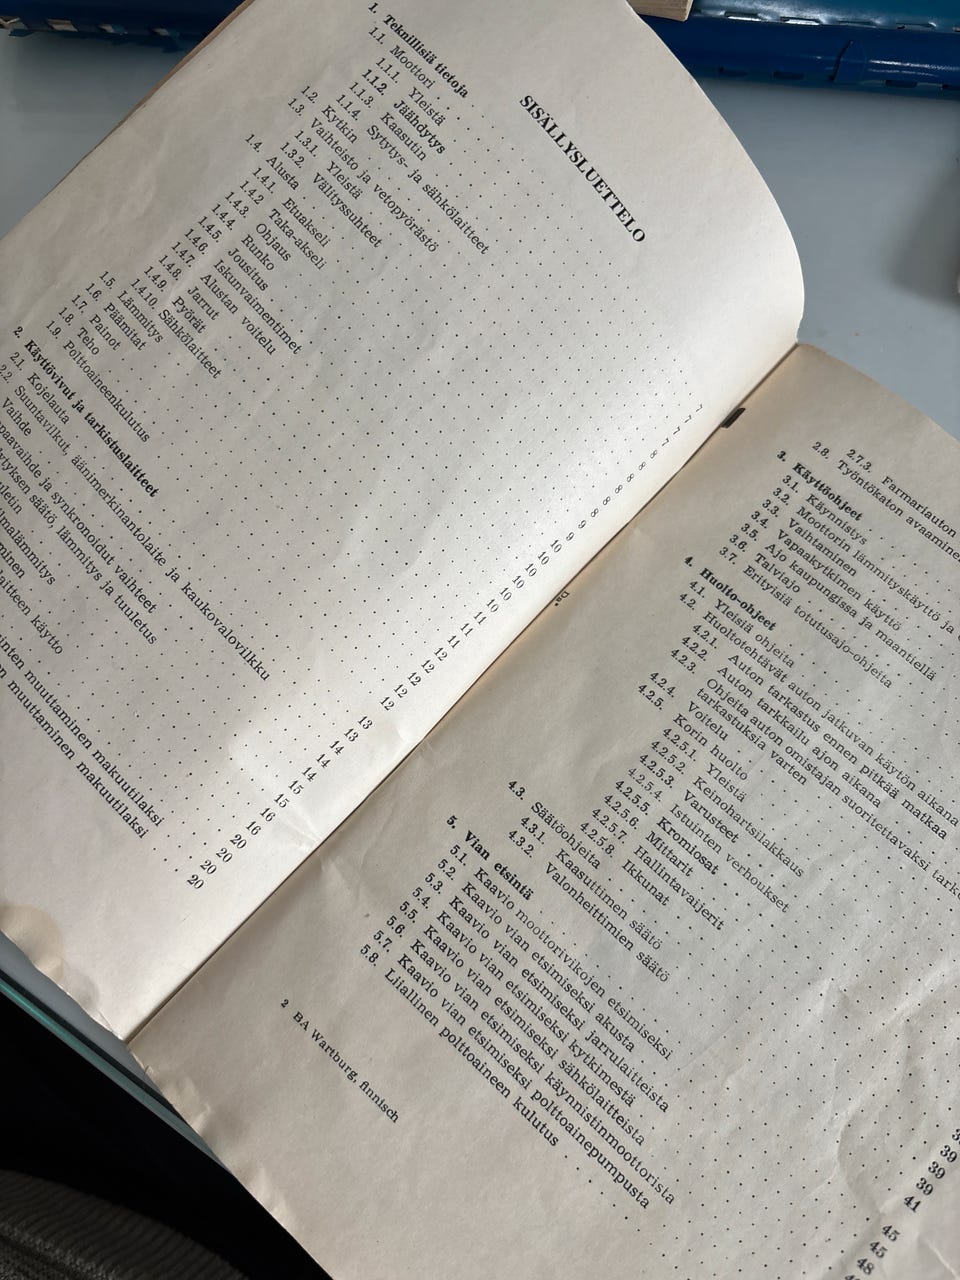 SISÄLLYSLUETTELO
1. Teknillisiä tietoja
1.1. Moottori
1.1.1. Yleistä
1.1.2. Jäähdytys
1.1.3. Kaasutin
1.1.4. Sytytys- ja sähkölaitteet
1.2. Kytkin
1.3. Vaihteisto ja vetopyörästö
1.3.1. Yleistä
1.3.2. Välityssuhteet
1.4. Alusta
1.4.1. Etuakseli
1.4.2 Taka-akseli
1.4.3. Ohjaus
1.4.4 Runko
1.4.5. Jousitus
1.4.6. Iskunvaimentimet
1.4.7. Alustan voitelu
1.4.8. Jarrut
1.4.9. Pyörät
1.4.10. Sähkölaitteet
1.5. Lämmitys
1.6. Päämitat
1.7. Painot
1.8. Teho
1.9. Polttoaineenkulutus
2. Käyttövivut ja tarkistuslaitteet
2.1. Kojelauta
2.2. Suuntavilkut, äänimerkinantolaite ja kaukovalovilkku
Vaihde
vaihde ja synkronoidut vaihteet
säätö, lämmitys ja tuuletus
käytto
muuttaminen makuutilaksi
muuttaminen makuutilaksi
7
7
7
7
8
8
8
8
9
9
10
10
10
10
10
11
11
12
12
12
12
13
14
14
15
15
16
16
20
20
20
20
2.7.3. Farmariauton
2.8. Työntökaton avaaminen
3. Käyttöohjeet
3.1. Käynnistys
3.2. Moottorin lämmityskäyttö ja
3.3. Vaihtaminen
3.4. Vapaakytkimen käyttö
3.5. Ajo kaupungissa ja maantiellä
3.6. Talviajo
3.7. Erityisiä totutusajo-ohjeita
4. Huolto-ohjeet
4.1. Yleisiä ohjeita
4.2. Huoltotehtävät auton jatkuvan käytön aikana
4.2.1. Auton tarkastus ennen pitkää matkaa
4.2.2. Auton tarkkailu ajon aikana
4.2.3. Ohjeita auton omistajan suoritettavaksi
tarkastuksia varten
4.2.4. Voitelu
4.2.5. Korin huolto
4.2.5.1. Yleistä
4.2.5.2. Keinohartsilakkaus
4.2.5.3 Varusteet
4.2.5.4 Istuinten verhoukset
4.2.5.5 Kromiosat
4.2.5.6. Mittarit
4.2.5.7 Hallintavaijerit
4.2.5.8. Ikkunat
4.3. Säätöohjeita
4.3.1. Kaasuttimen säätö
4.3.2. Valonheittimien säätö
5. Vian etsintä
5.1. Kaavio moottorivikojen etsimiseksi
5.2. Kaavio vian etsimiseksi akusta
5.3. Kaavio vian etsimiseksi jarrulaitteista
5.4. Kaavio vian etsimiseksi kytkimestä
5.5. Kaavio vian etsimiseksi sähkölaitteista
5.6. Kaavio vian etsimiseksi käynnistinmoottorista
5.7. Kaavio vian etsimiseksi polttoainepumpusta
5.8. Liiallinen polttoaineen kulutus
39
39
39
41
45
45
48
2 BA Wartburg, finnisch